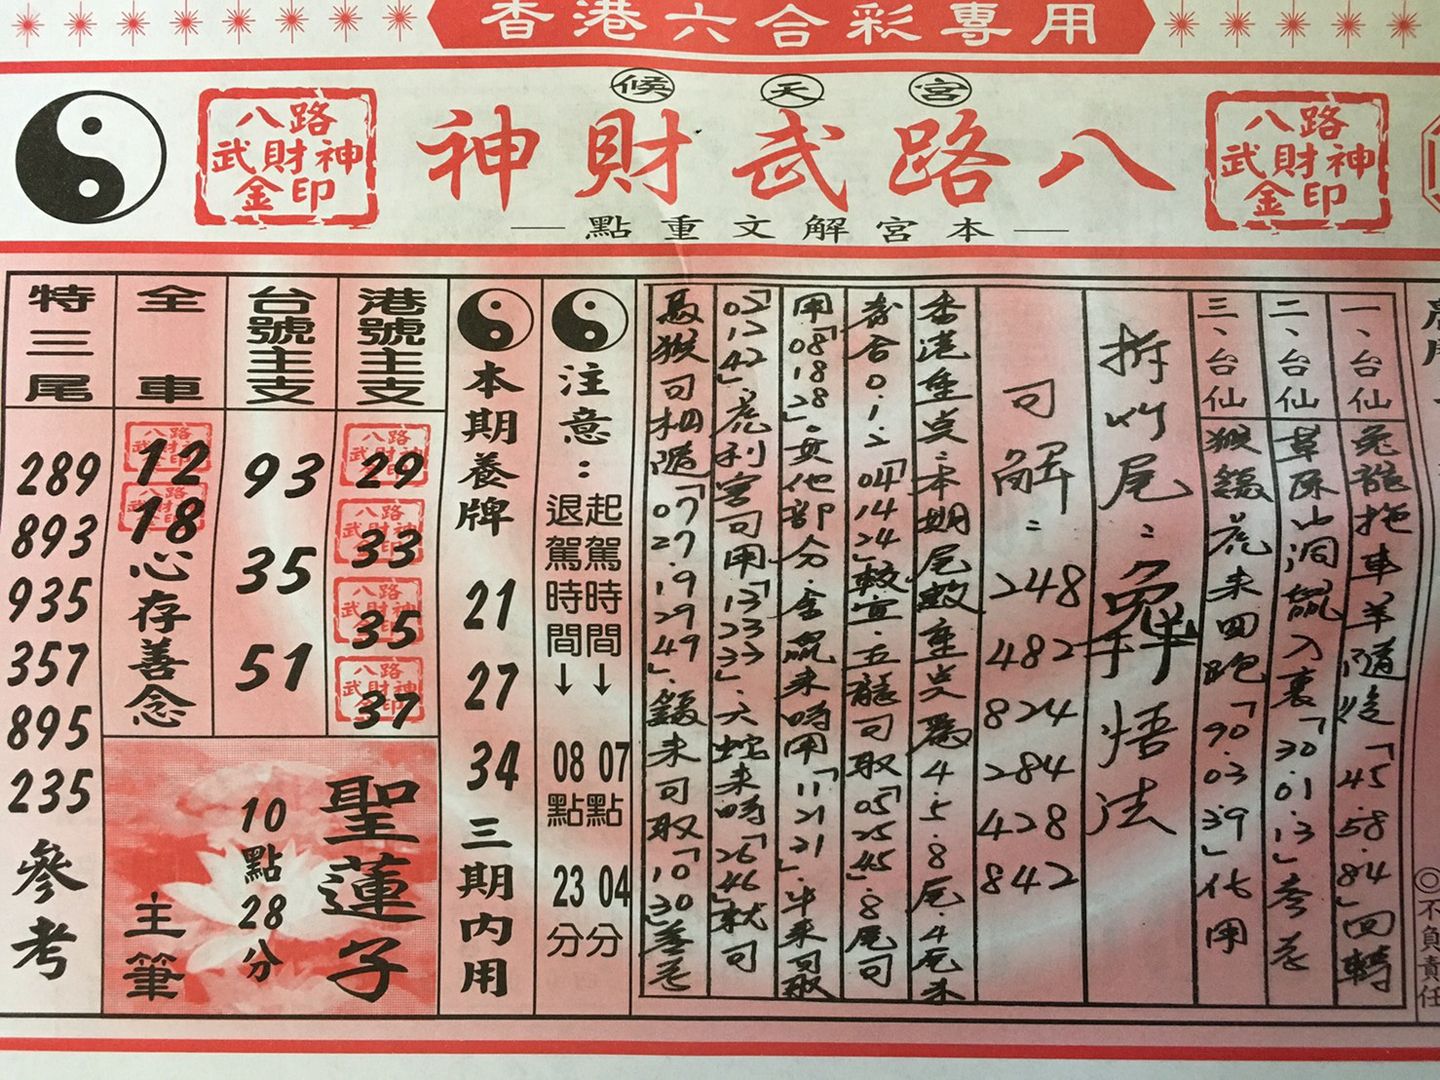 香港六合彩專用
候天宮
八路武財神
本宮解文重點
八路
武財神
金印
八路
武財神
金印
一、台仙 兔龍拖車羊隨後「45.58.84」回轉
二、台仙 草深山洞鼠入裏「30.01.13」參考
三、台仙 猴鷄虎來回跑「90.03.39」代用
拆竹尾:
悟法
可解:
248
482
824
284
428
842
香港重点:本期尾數重点為4.5.8尾.4尾来
春合0.1.2「04 14 24」較宜.五龍可取「05 25 45」.8尾可
用「08 18 28」其他部分.金鼠来時用「11 21 31」.牛来可取
「02 12 42」.虎利害可用「13 23 33」.六蛇来時「26 46」就可
馬猴可相隨「07 27.19 29 49」鷄来可取「10 30」養老
注意:
起駕時間↓ 07點04分
退駕時間↓ 08點23分
本期養牌 21 27 34 三期內用
港號主支
29
33
35
37
台號主支
93
35
51
全車
12
18
心存善念
特三尾
289
893
935
357
895
235
參考
聖蓮子
10點28分
主筆
◎不負責任